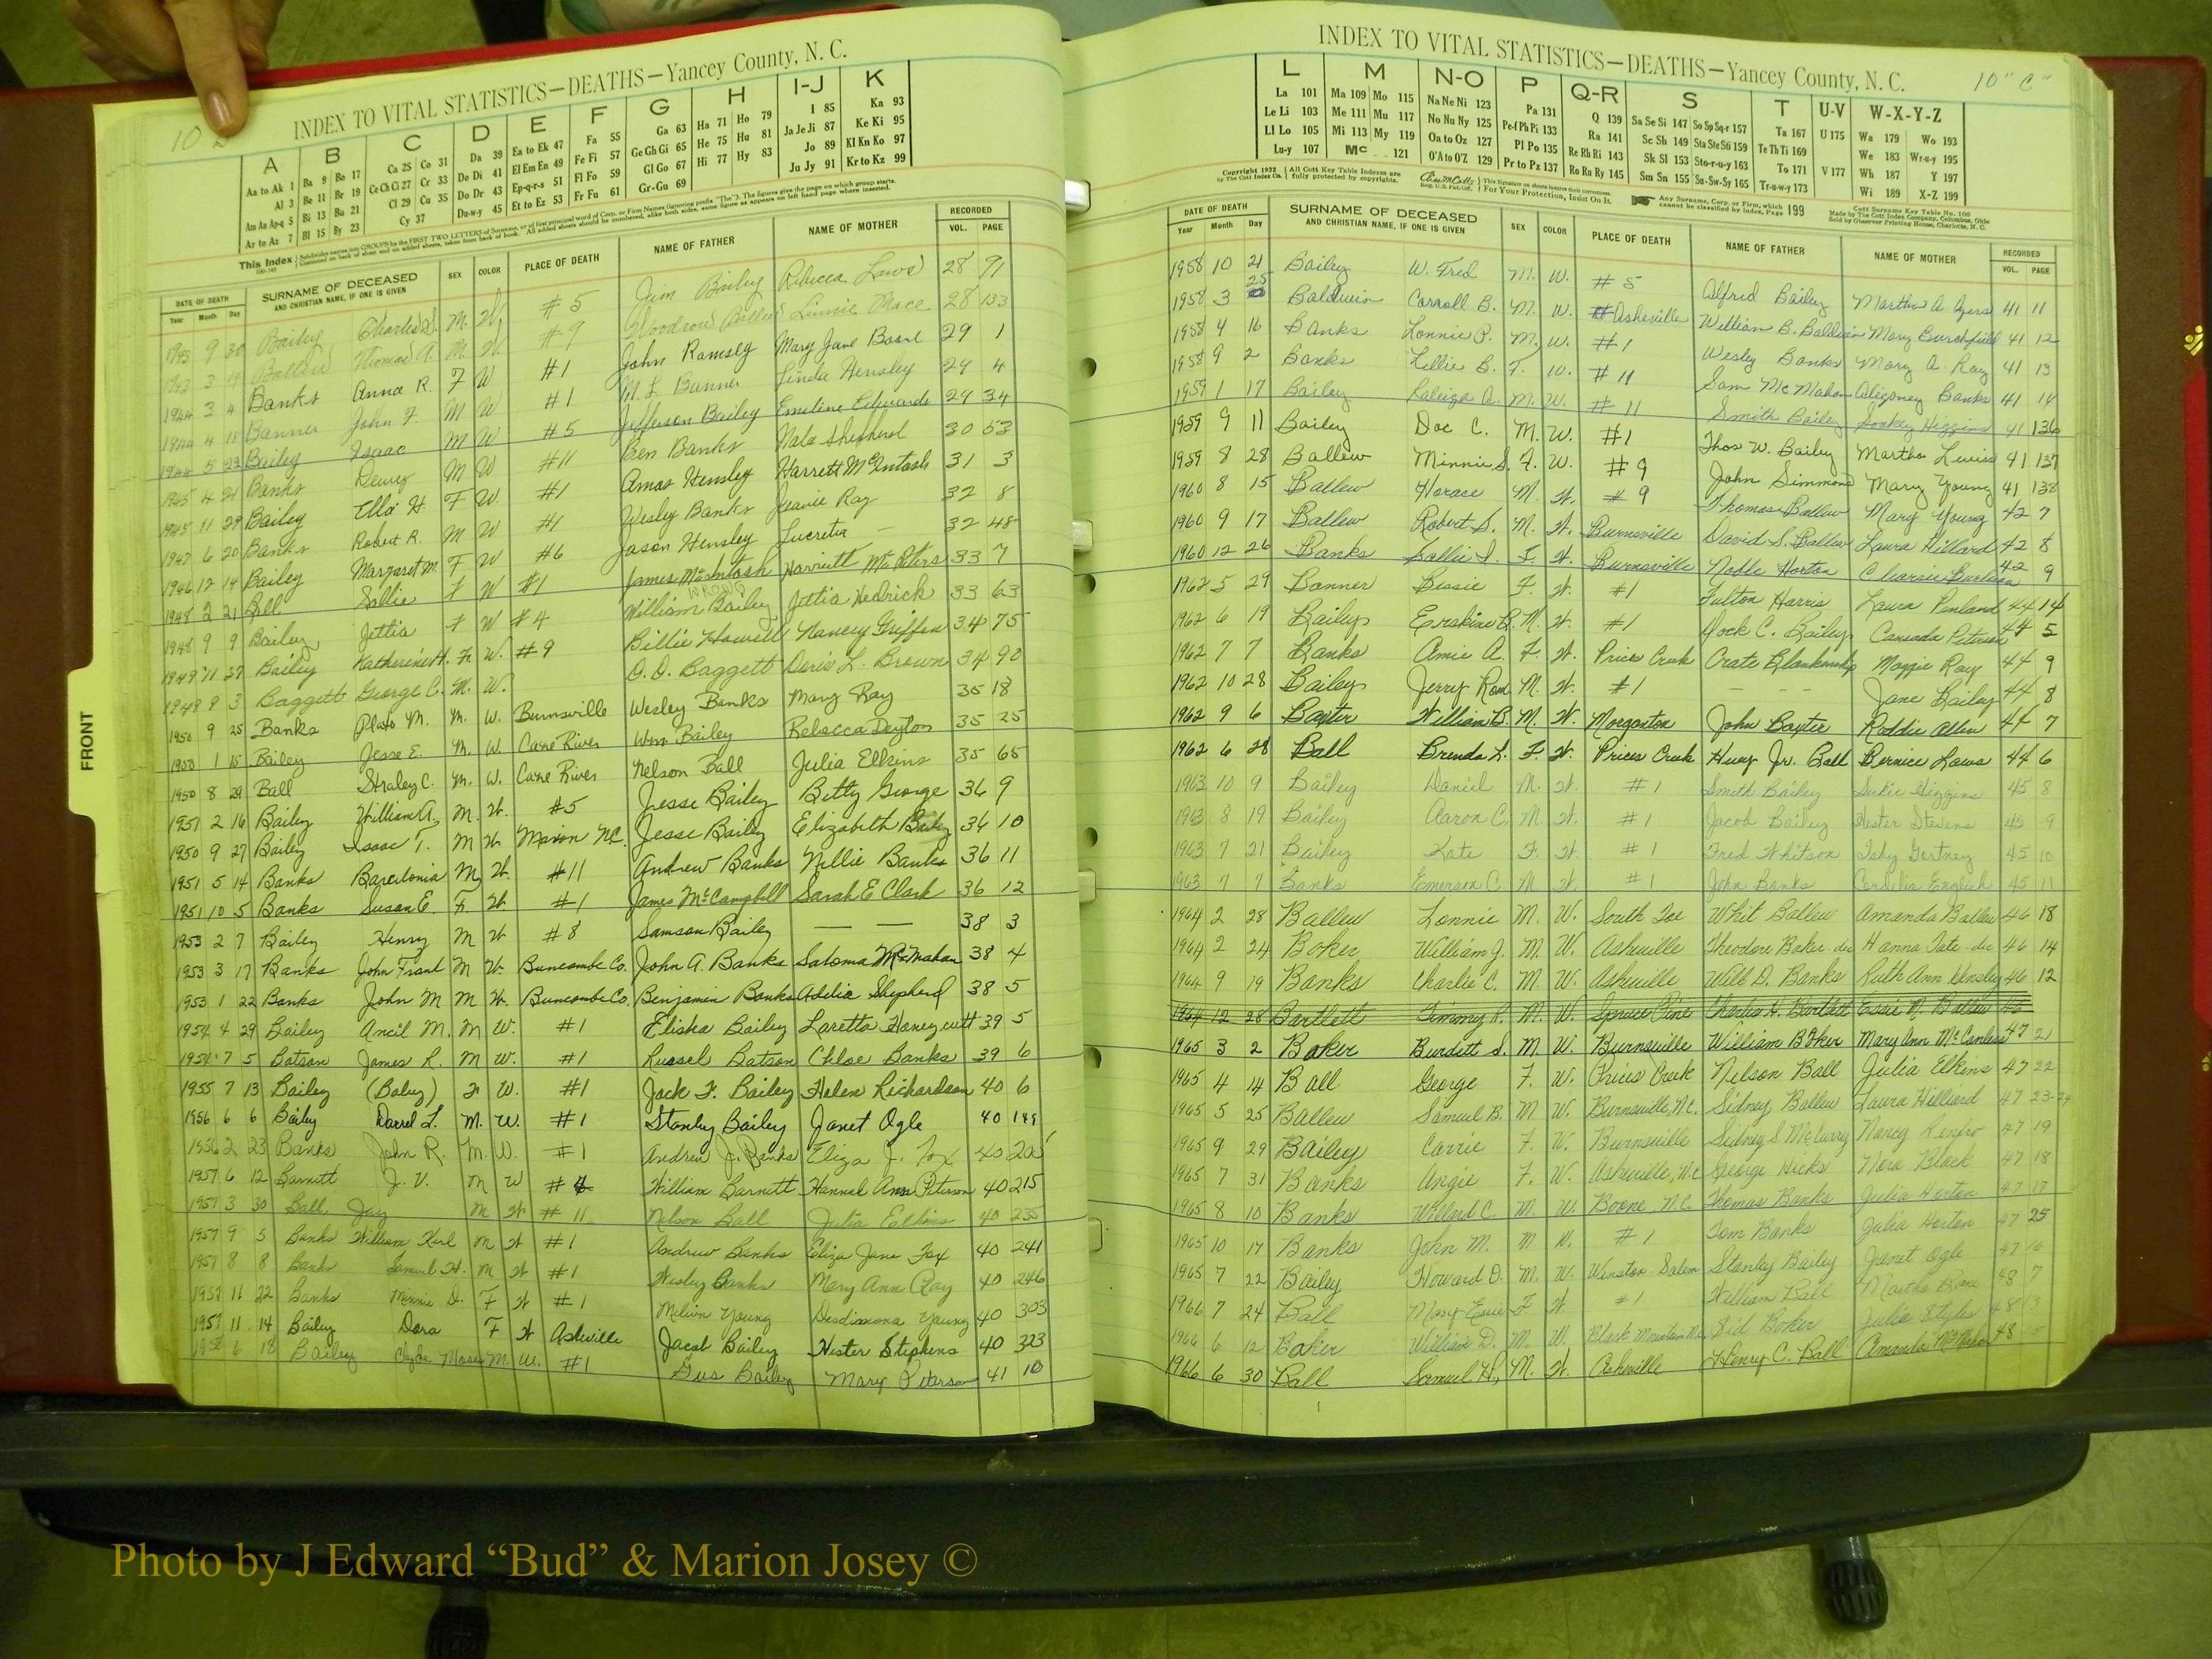 INDEX TO VITAL STATISTICS—DEATHS—Yancey County, N. C.
10
A B C D E F G H I-J K
Aa to Ak 1 Ba 9 Bo 17 Ca 25 Co 31 Da 39 Ea to Ek 47 Fa 55 Ga 63 Ha 71 Ho 79 I 85 Ka 93
Al 3 Be 11 Br 19 Ce Ch Ci 27 Cr 33 De Di 41 El Em En 49 Fe Fi 57 Ge Gh Gi 65 He 75 Hu 81 Ja Je Ji 87 Ke Ki 95
Am An Ap-q 5 Bi 13 Bu 21 Cl 29 Cu 35 Do Dr 43 Ep-q-r-s 51 Fl Fo 59 Gl Go 67 Hi 77 Hy 83 Jo 89 Kl Kn Ko 97
Ar to Az 7 Bl 15 By 23 Cy 37 Du-w-y 45 Et to Ez 53 Fr Fu 61 Gr-Gu 69 Ju Jy 91 Kr to Kz 99
DATE OF DEATH SURNAME OF DECEASED SEX COLOR PLACE OF DEATH NAME OF FATHER NAME OF MOTHER RECORDED
Year Month Day AND CHRISTIAN NAME, IF ONE IS GIVEN VOL. PAGE
1943 9 30 Bailey Charles S. M. W. #5 Jim Bailey Rebecca Laws 28 91
1943 3 Ballew Thomas A. M. W. #9 Woodrow Ballew Linnie Mace 28 133
1944 3 4 Banks Anna R. F W #1 John Ramsey Mary Jane Boone 29 1
1944 4 18 Banner John F. M W #1 M. L. Banner Linda Hensley 29 4
1944 5 22 Bailey Isaac M W #5 Jefferson Bailey Emeline Edwards 29 34
1945 4 21 Banks Dewey M W #11 Ben Banks Nala Shepherd 30 53
1945 11 29 Bailey Ella H. F W. #1 Amos Hensley Harrett McIntosh 31 3
1947 6 20 Banks Robert R. M W #1 Wesley Banks Jeanie Ray 32 8
1946 12 14 Bailey Margaret M. F W #6 Jason Hensley Lucretia — 32 48
1948 2 21 Ball Sallie F W #1 James McIntosh Harriett McPeters 33 7
1948 9 9 Bailey Jettia F W #4 William Bailey Jettia Hedrick 33 63
WRONG
1949 11 27 Bailey Katherine H. F. W. #9 Billie Howell Nancy Griffin 34 75
1949 8 3 Baggett George C. M. W. O. D. Baggett Doris L. Brown 34 90
1950 9 25 Banks Plato M. M. W. Burnsville Wesley Banks Mary Ray 35 18
1950 1 15 Bailey Jesse E. M. W. Cane River Wm Bailey Rebecca Deyton 35 25
1950 8 29 Ball Straley C. M. W. Cane River Nelson Ball Julia Elkins 35 65
1951 2 16 Bailey William A. M. W. #5 Jesse Bailey Betty George 36 9
1950 9 27 Bailey Isaac T. M W. Maxon N.C. Jesse Bailey Elizabeth Bailey 36 10
1951 5 14 Banks Bacedonia M W. #11 Andrew Banks Nellie Banks 36 11
1951 10 5 Banks Susan E. F. W. #1 James McCampbell Sarah E Clark 36 12
1953 2 7 Bailey Henry M W. #8 Samson Bailey — — 38 3
1953 3 17 Banks John Frank M W. Buncombe Co. John A. Banks Saloma McMahan 38 4
1953 1 22 Banks John M M W. Buncombe Co. Benjamin Banks Adelia Shepherd 38 5
1954 4 29 Bailey Ancil M. M W. #1 Elisha Bailey Laretta Honeycutt 39 5
1954 7 5 Batson James R. M W. #1 Russel Batson Chloe Banks 39 6
1955 7 13 Bailey (Baby) F W. #1 Jack F. Bailey Helen Richardson 40 6
1956 6 6 Bailey Darrel L. M. W. #1 Stanley Bailey Janet Ogle 40 149
1956 2 23 Banks John R. M. W. #1 Andrew J. Banks Eliza J. Fox 40 20
1957 6 12 Barnett J. V. M W # William Barnett Hannah Ann Peterson 40 215
1957 3 30 Ball Jay M W #11 Nelson Ball Julia Elkins 40 235
1957 9 5 Banks William Karl M W #1 Andrew Banks Eliza Jane Fox 40 241
1957 8 8 Banks Samuel H. M W #1 Wesley Banks Mary Ann Ray 40 246
1957 11 22 Banks Minnie D. F W #1 Melvin Young Desdimona Young 40 303
1957 11 14 Bailey Dora F W Asheville Jacob Bailey Hester Stephens 40 323
1958 6 18 Bailey Clyde Moses M. W. #1 Gus Bailey Mary Peterson 41 10
FRONT
INDEX TO VITAL STATISTICS—DEATHS—Yancey County, N. C.
10 "C"
L M N-O P Q-R S T U-V W-X-Y-Z
La 101 Ma 109 Mo 115 Na Ne Ni 123 Pa 131 Q 139 Sa Se Si 147 So Sp Sq-r 157 Ta 167 U 175 Wa 179 Wo 193
Le Li 103 Me 111 Mu 117 No Nu Ny 125 Pe-f Ph Pi 133 Ra 141 Sc Sh 149 Sta Ste Sti 159 Te Th Ti 169 We 183 Wr-u-y 195
Ll Lo 105 Mi 113 My 119 Oa to Oz 127 Pl Po 135 Re Rh Ri 143 Sk Sl 153 Sto-r-u-y 163 To 171 V 177 Wh 187 Y 197
Lu-y 107 Mc 121 O'A to O'Z 129 Pr to Pz 137 Ro Ru Ry 145 Sm Sn 155 Su-Sw-Sy 165 Tr-u-w-y 173 Wi 189 X-Z 199
DATE OF DEATH SURNAME OF DECEASED SEX COLOR PLACE OF DEATH NAME OF FATHER NAME OF MOTHER RECORDED
Year Month Day AND CHRISTIAN NAME, IF ONE IS GIVEN VOL. PAGE
1958 10 21 Bailey W. Fred M. W. #5 Alfred Bailey Martha A Ayers 41 11
1958 3 25 Baldwin Carroll B. M. W. Asheville William B. Baldwin Mary Burchfield 41 12
1958 4 16 Banks Lonnie P. M. W. #1 Wesley Banks Mary A. Ray 41 13
1958 9 2 Banks Lillie B. F. W. #11 Sam McMahan Banks 41 14
1959 1 17 Bailey A. M. W. #11 Smith Bailey Higgins 41 136
1959 9 11 Bailey Doc C. M. W. #1 Thos W. Bailey Martha Lewis 41 137
1959 8 28 Ballew Minnie S. F. W. #9 John Simmons Mary Young 41 138
1960 8 15 Ballew Horace M. W. #9 Thomas Ballew Mary Young 42 7
1960 9 17 Ballew Robert S. M. W. Burnsville David S. Ballew Laura Hillard 42 8
1960 12 26 Banks Sallie I. F. W. Burnsville Noble Horton Burleson 42 9
1962 5 29 Banner Bessie F. W. #1 Fulton Harris Laura Penland 44 14
1962 6 19 Bailey Erskine B. M. W. #1 Dock C. Bailey Canzada Peterson 44 5
1962 7 7 Banks Amie A. F. W. Prices Creek Crate Blankenship Maggie Ray 44 9
1962 10 28 Bailey Jerry Ron M. W. #1 - - - Jane Bailey 44 8
1962 9 6 Baxter William B. M. W. Morganton John Baxter Roddie Allen 44 7
1962 6 28 Ball Brenda L. F. W. Prices Creek Huey Jr. Ball Bernice Laws 44 6
1963 10 9 Bailey Daniel M. W. #1 Smith Bailey Sukie Higgins 45 8
1963 8 19 Bailey Aaron C. M. W. #1 Jacob Bailey Hester Stevens 45 9
1963 7 21 Bailey Kate F. W. #1 Fred Whitson Gortney 45 10
1963 7 7 Banks Emerson C. M W. #1 John Banks Cordelia English 45 11
1964 2 28 Ballew Lonnie M. W. South Toe Whit Ballew Amanda Ballew 46 18
1964 2 24 Baker William J. M. W. Asheville Theodore Baker-dec Hanna Tate-dec 46 14
1964 9 19 Banks Charlie C. M. W. Asheville Will D. Banks Ruth Ann Hensley 46 12
1964 12 28 Bartlett Timmy R. M. W. Spruce Pine Charles H. Bartlett Essie N. Ballew 46
1965 3 2 Baker Burdett S. M. W. Burnsville William Baker Mary Ann McCanless 47 21
1965 4 14 Ball George F. W. Prices Creek Nelson Ball Julia Elkins 47 22
1965 5 25 Ballew Samuel B. M W. Burnsville, N.C. Sidney Ballew Laura Hilliard 47 23-24
1965 9 29 Bailey Carrie F. W. Burnsville Sidney S McCurry Nancy Renfro 47 19
1965 7 31 Banks Angie F. W. Asheville, N.C. George Hicks Nora Black 47 18
1965 8 10 Banks Willard C. M. W. Boone N.C. Thomas Banks Julia Horton 47 17
1965 10 17 Banks John M. M W. #1 Tom Banks Julia Horton 47 25
1965 7 22 Bailey Howard D. M. W. Winston-Salem Stanley Bailey Janet Ogle 47
1966 7 24 Ball Mary F W. #1 William Ball Martha 48 7
1966 6 12 Baker William D. M. W. Black Mountain N.C. Sid Baker Julia Styles 48
1966 6 30 Ball Samuel H., M. W. Asheville Henry C. Ball Amanda 48
Photo by J Edward “Bud” & Marion Josey ©